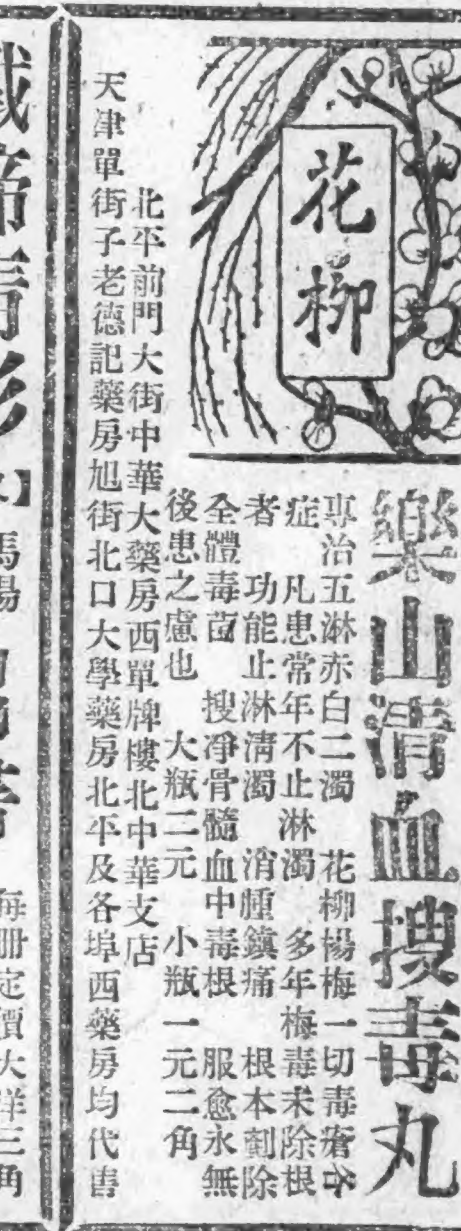 花柳
樂山清血搜毒丸
專治五淋赤白二濁　花柳楊梅一切毒瘡各
症　凡患常年不止淋濁　多年梅毒未除根
者　功能止淋清濁　消腫鎮痛　根本剷除
全體毒菌　搜凈骨髓血中毒根　服愈永無
後患之慮也　大瓶二元　小瓶一元二角
北平前門大街中華大藥房西單牌樓北中華支店
天津單街子老德記藥房旭街北口大學藥房北平及各埠西藥房均代售
馬場
每冊定價大洋三角